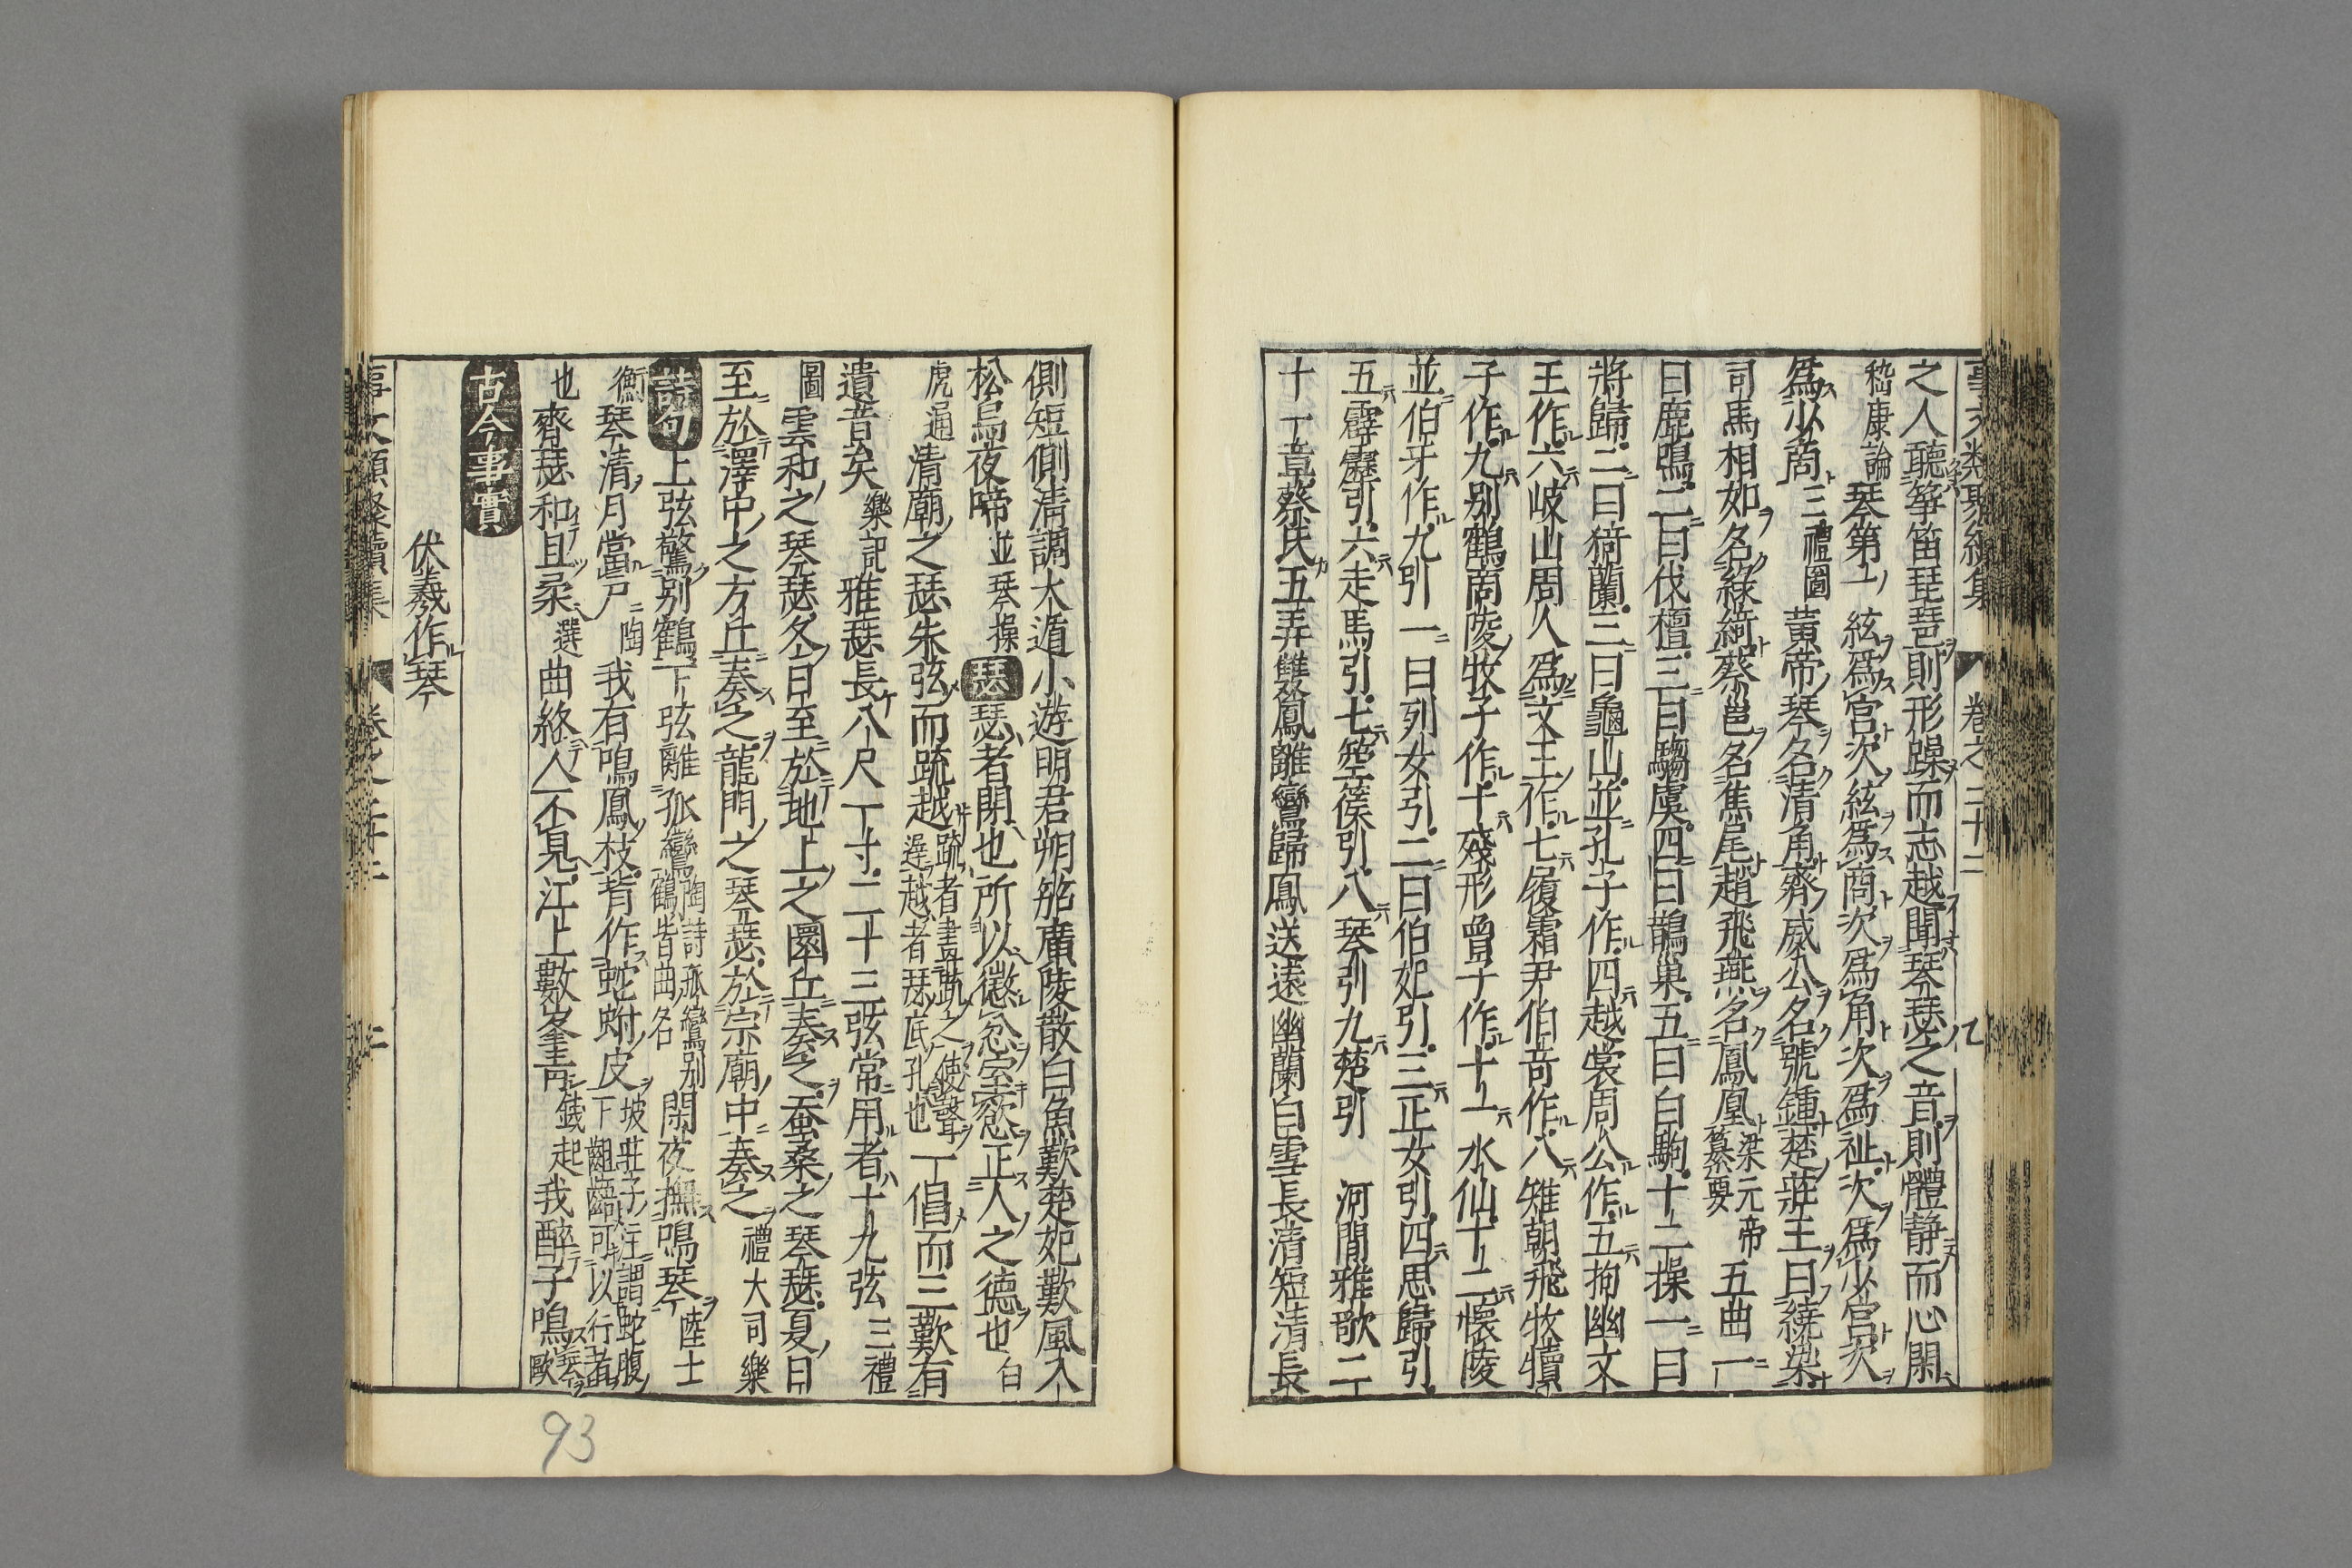 之人聽箏笛琵琶則形躁而志越聞琴瑟之音則體靜而心閑
嵇康論琴第一絃爲宮次絃爲商次爲角次爲祉次爲少宮次
爲少商三禮圖黄帝琴名清角齊威公名號鍾楚莊王曰繞梁
司馬相如名綠綺蔡邕名焦尾趙飛燕名鳳凰梁元帝纂要五曲一
曰鹿鳴二曰伐檀三曰騶虞四曰鵲巢五曰白駒十二操一曰
將歸二曰猗蘭三曰龜山並孔子作四越裳周公作五拘幽文
王作六岐山周人爲文王作七履霜尹伯奇作八雉朝飛牧犢
子作九别鶴商陵牧子作十殘形曾子作十一水仙十二懷陵
並伯牙作九引一曰列女引二曰伯妃引三正女引四思歸引
五霹靂引六走馬引七箜篌引八琴引九楚引河間雅歌二
十一章蔡氏五弄雙鳳離鸞歸鳳送遠幽蘭白雪長清短清長
側短側清調大遊小遊明君胡笳廣陵散白魚歎楚妃歎風入
松烏夜啼並琴操瑟瑟者閉也所以懲忿窒慾正人之德也白
虎通清廟之瑟朱弦而疏越疏者盡疏之使聲
遲越者瑟底孔也一倡而三歎有
遺音矣樂記雅瑟長八尺一寸二十三弦常用者十九弦三禮
圖雲和之琴瑟冬日至於地上之圜丘奏之桑之琴瑟夏日
至於澤中之方丘奏之龍門之琴瑟於宗廟中奏之禮大司樂
詩句上弦驚别鶴下弦離孤鸞陶詩孤鸞别
鶴皆曲名閑夜撫鳴琴陸士
衡琴清月當戸陶我有鳴鳳枝背作蛇蚹皮坡莊子注謂蛇腹
下齟齬可以行者
也齊瑟和且柔選曲終人不見江上數峯青錢起我醉子鳴琴歐
古今事實
伏羲作琴
卷之二十二
93